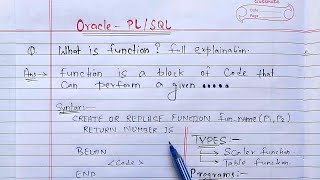 Oracle - PL/SQL
Q. What is function? full explaination.
Ans→ function is a block of Code that
Can perform a given .....
Syntax:-
CREATE OR REPLACE FUNCTION fun_name(P1,P2)
RETURN NUMBER IS
TYPES:-
→ Scaler function
→ Table function.
BEGIN
<Code>
END
Programs:-